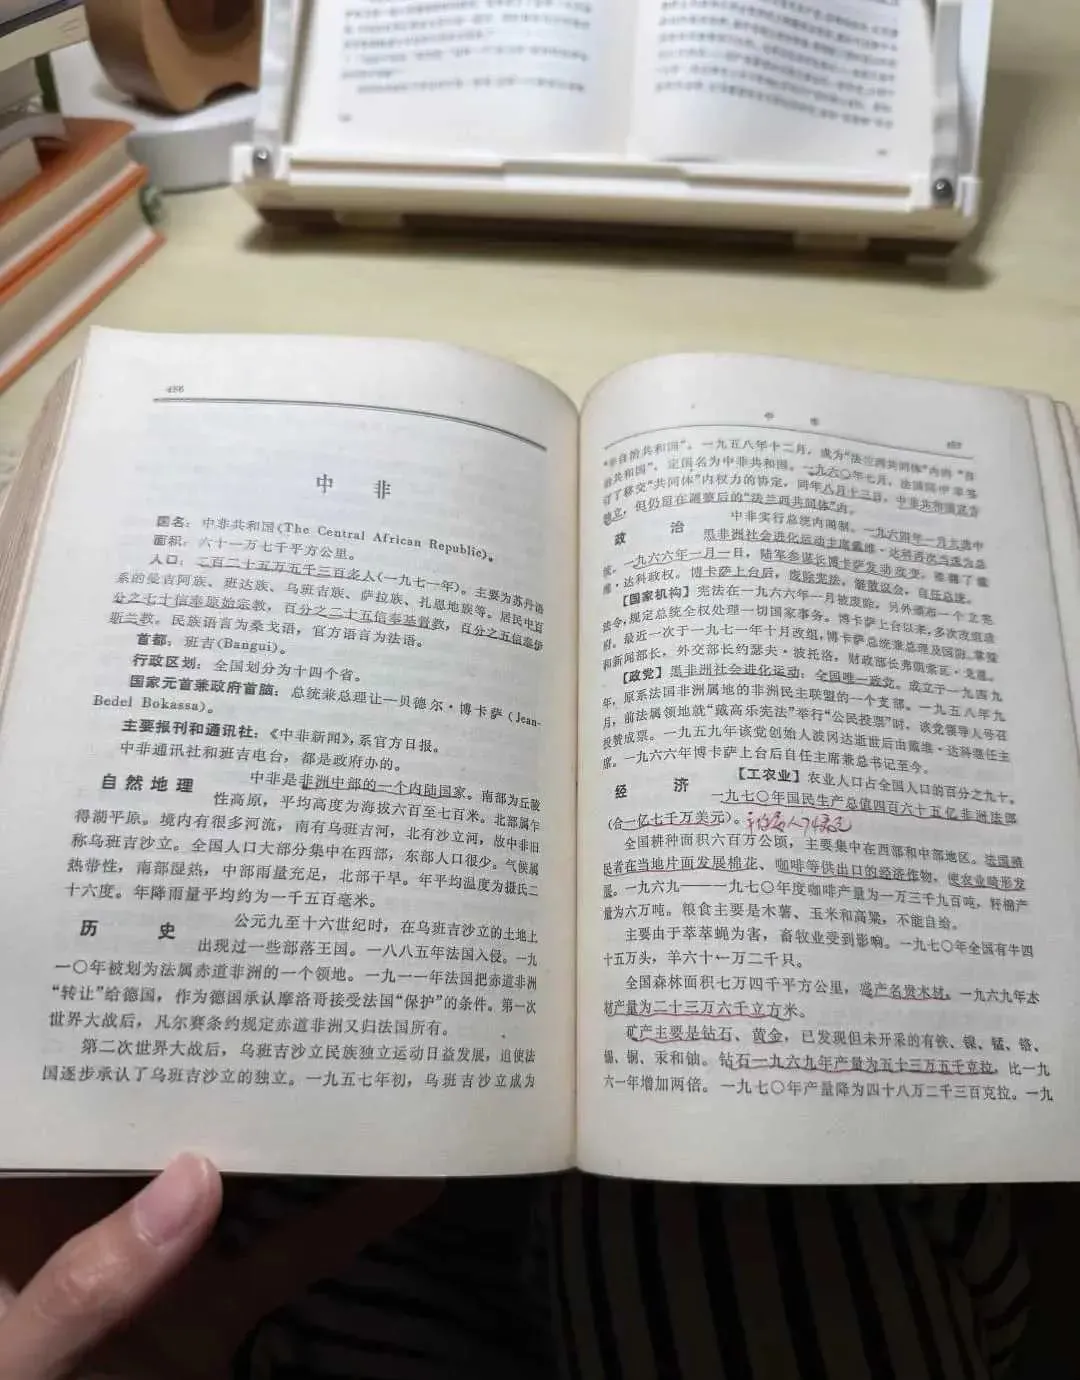 486
中 非
国名：中非共和国(The Central African Republic)。
面积：六十一万七千平方公里。
人口：二百二十五万五千三百多人(一九七一年)。主要为苏丹语
系的曼吉阿族、班达族、乌班吉族、萨拉族、扎恩地族等。居民中百
分之七十信奉原始宗教，百分之二十五信奉基督教，百分之五信奉伊
斯兰教。民族语言为桑戈语，官方语言为法语。
首都：班吉(Bangui)。
行政区划：全国划分为十四个省。
国家元首兼政府首脑：总统兼总理让—贝德尔·博卡萨(Jean-
Bedel Bokassa)。
主要报刊和通讯社：《中非新闻》，系官方日报。
中非通讯社和班吉电台，都是政府办的。
自然地理 中非是非洲中部的一个内陆国家。南部为丘陵
性高原，平均高度为海拔六百至七百米。北部属乍
得湖平原。境内有很多河流，南有乌班吉河，北有沙立河，故中非旧
称乌班吉沙立。全国人口大部分集中在西部，东部人口很少。气候属
热带性，南部湿热，中部雨量充足，北部干旱。年平均温度为摄氏二
十六度。年降雨量平均约为一千五百毫米。
历 史 公元九至十六世纪时，在乌班吉沙立的土地上
出现过一些部落王国。一八八五年法国入侵。一九
一〇年被划为法属赤道非洲的一个领地。一九一一年法国把赤道非洲
“转让”给德国，作为德国承认摩洛哥接受法国“保护”的条件。第一次
世界大战后，凡尔赛条约规定赤道非洲又归法国所有。
第二次世界大战后，乌班吉沙立民族独立运动日益发展，迫使法
国逐步承认了乌班吉沙立的独立。一九五七年初，乌班吉沙立成为
中 非 487
“半自治共和国”。一九五八年十二月，成为“法兰西共同体”内的“自
治共和国”，定国名为中非共和国。一九六〇年七月，法国同中非签
订了移交“共同体”内权力的协定，同年八月十三日，中非共和国宣告
独立，但仍留在调整后的“法兰西共同体”内。
政 治 中非实行总统内阁制。一九六四年一月大选中
黑非洲社会进化运动主席戴维·达科再次当选为总
统。一九六六年一月一日，陆军参谋长博卡萨发动政变，推翻了戴
维·达科政权。博卡萨上台后，废除宪法，解散议会，自任总统。
【国家机构】宪法在一九六六年一月被废除，另外颁布一个立宪
法令，规定总统全权处理一切国家事务。博卡萨上台以来，多次改组政
府。最近一次于一九七一年十月改组，博卡萨总统兼总理及国防、掌玺
和新闻部长，外交部长约瑟夫·波托洛，财政部长弗朗索瓦·戈意。
【政党】黑非洲社会进化运动：全国唯一政党。成立于一九四九
年，原系法国非洲属地的非洲民主联盟的一个支部。一九五八年九
月，前法属领地就“戴高乐宪法”举行“公民投票”时，该党领导人号召
投赞成票。一九五九年该党创始人波冈达逝世后由戴维·达科继任主
席。一九六六年博卡萨上台后自任主席兼总书记至今。
经 济 【工农业】农业人口占全国人口的百分之九十。
一九七〇年国民生产总值四百六十五亿非洲法郎
(合一亿七千万美元)。
全国耕种面积六百万公顷，主要集中在西部和中部地区。法国殖
民者在当地片面发展棉花、咖啡等供出口的经济作物，使农业畸形发
展。一九六九——一九七〇年度咖啡产量为一万三千九百吨，籽棉产
量为六万吨。粮食主要是木薯、玉米和高粱，不能自给。
主要由于萃萃蝇为害，畜牧业受到影响。一九七〇年全国有牛四
十五万头，羊六十一万二千只。
全国森林面积七万四千平方公里，盛产名贵木材。一九六九年木
材产量为二十三万六千立方米。
矿产主要是钻石、黄金，已发现但未开采的有铁、镍、锰、铬、
锡、铜、汞和铀。钻石一九六九年产量为五十三万五千克拉，比一九
六一年增加两倍。一九七〇年产量降为四十八万二千三百克拉。一九